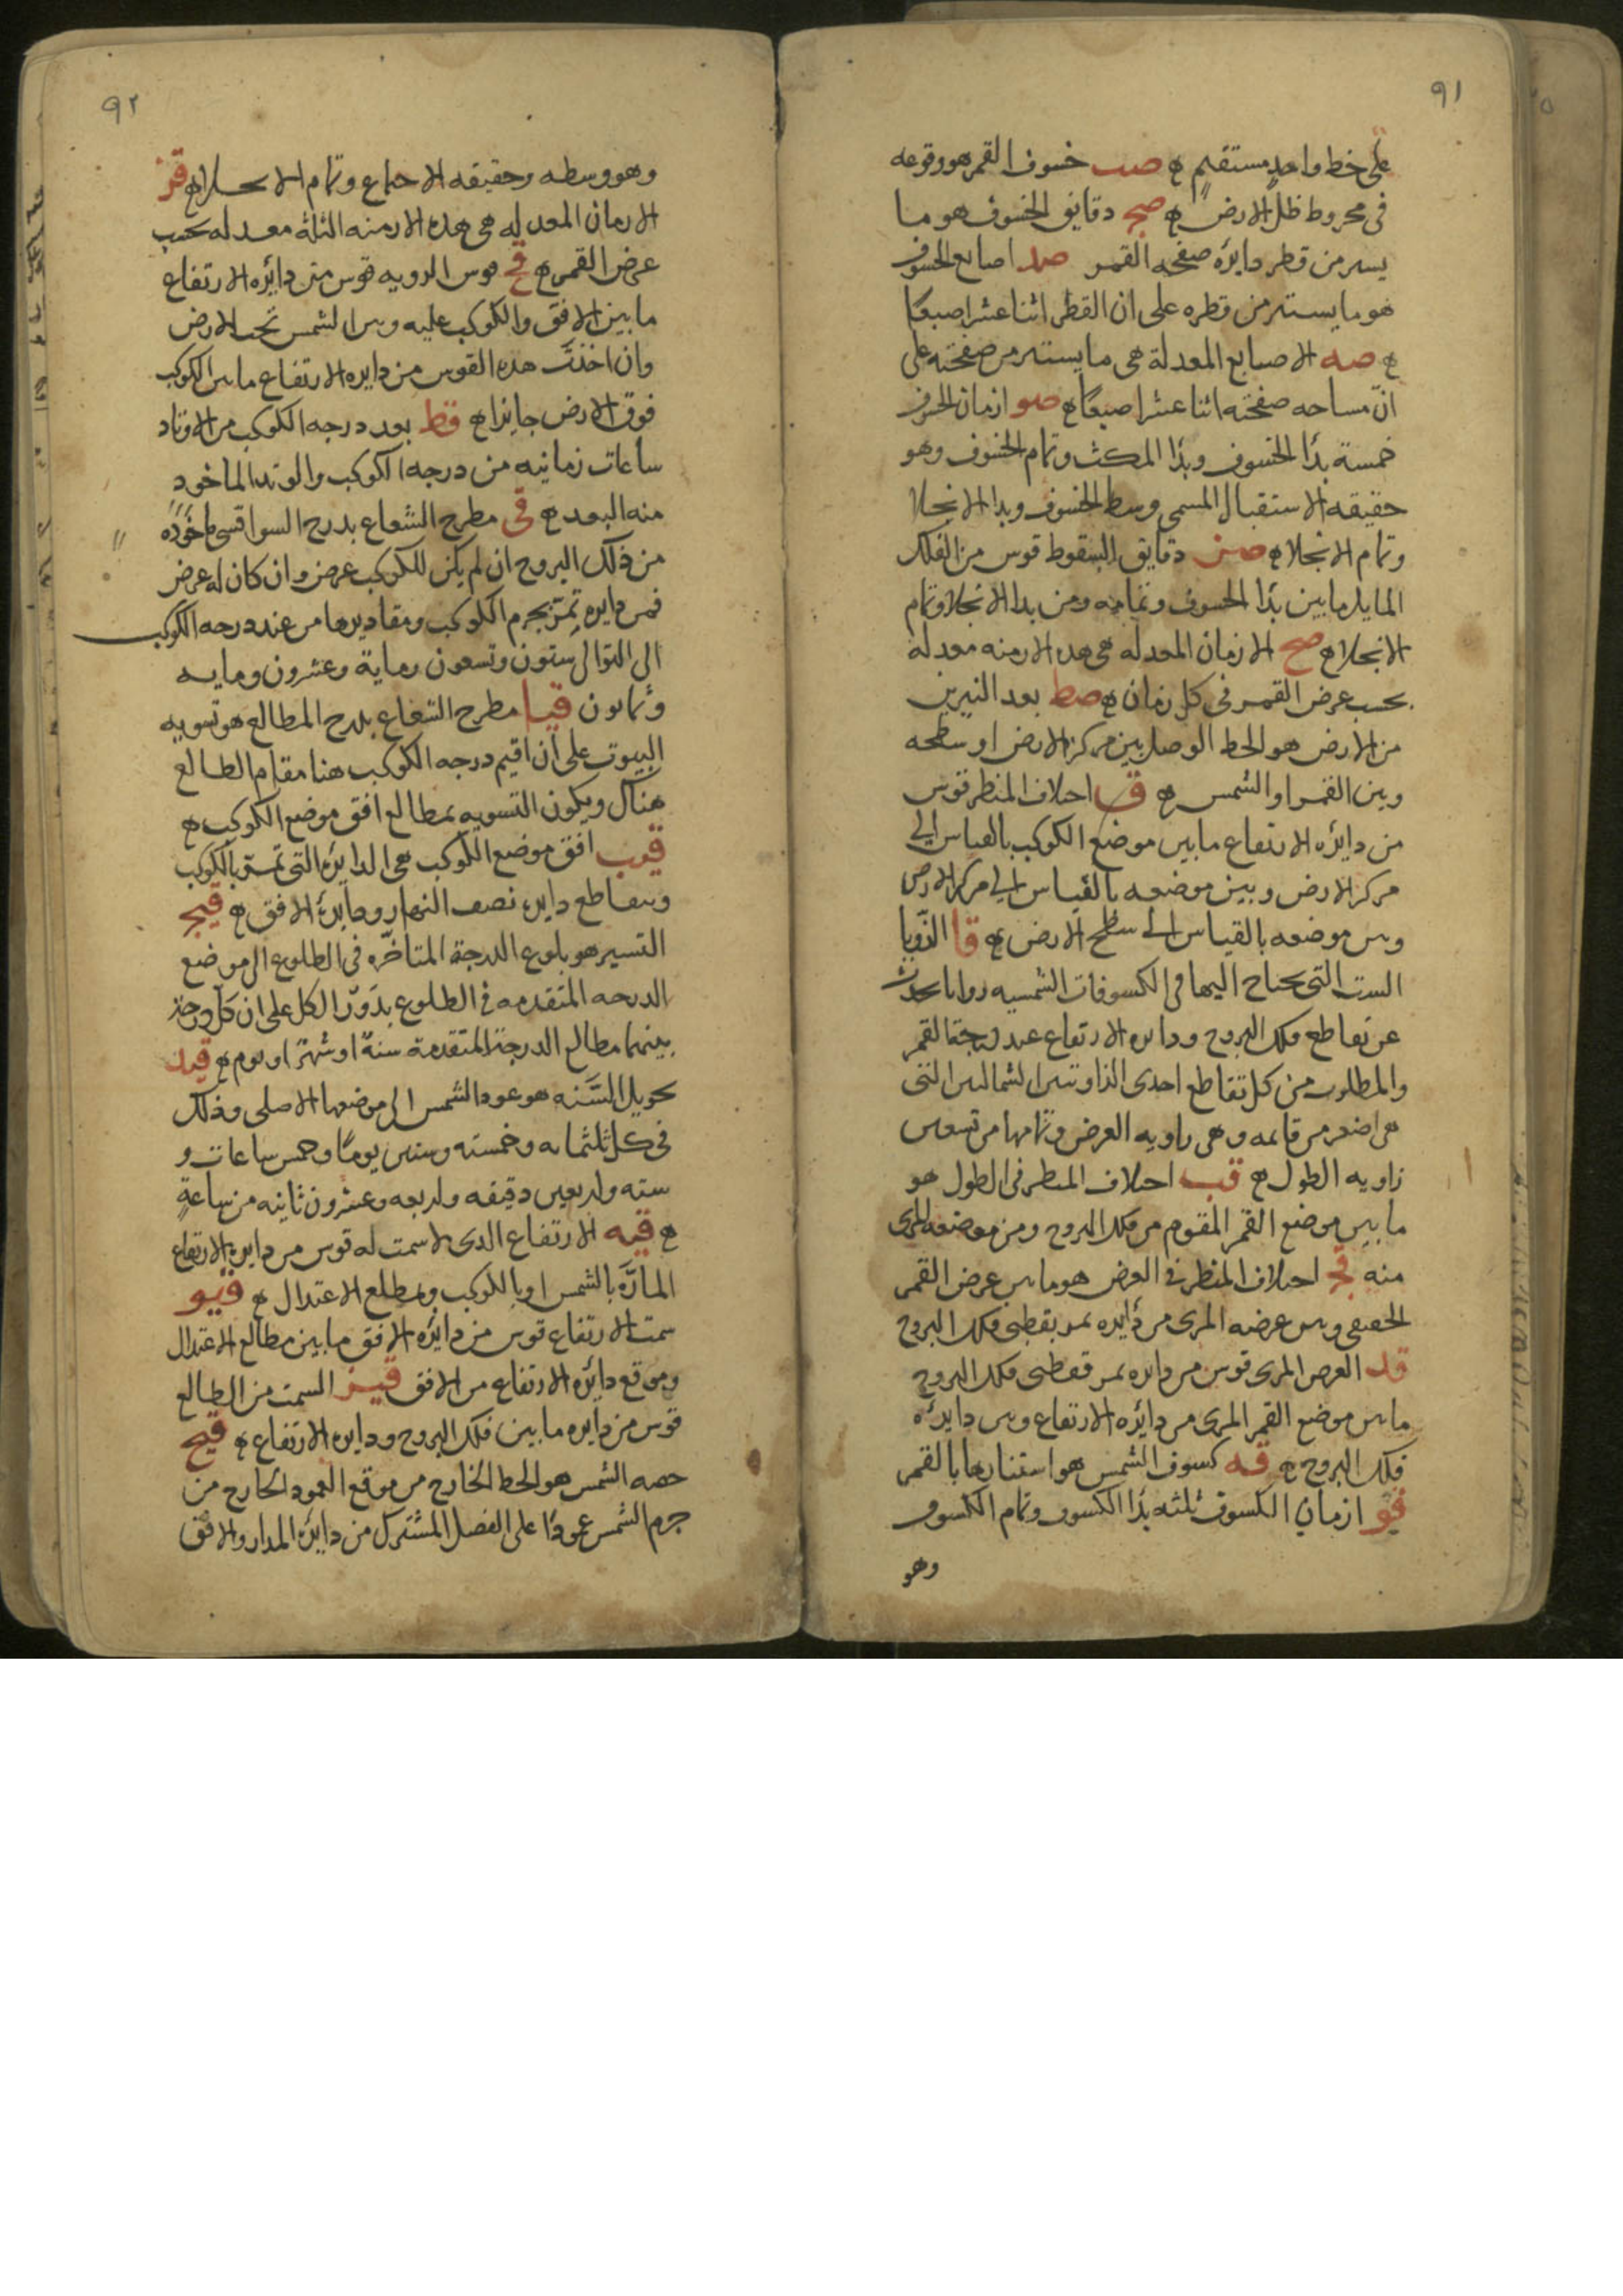 ٩١
على خط واحد مستقيم ۞ صب خسوف القمر هو وقوعه
فى مخروط ظل الارض ۞ صج دقايق الخسوف هو ما
يستر من قطر دايره صفحه القمر صد اصابع الخسوف
هو ما يستتر من قطره على ان القطر اثنا عشر اصبعًا
۞ صه الاصابع المعدلة هى ما يستتر من صفحته على
انّ مساحه صفحته اثنا عشر اصبعًا ۞ صو ازمان الخسوف
خمسة بدًا الخسوف وبدًا المكث وتمام الخسوف وهو
حقيقه الاستقبال المسمى وسط الخسوف وبدا الانجلا
وتمام الانجلا ۞ صز دقايق السقوط قوس من الفلك
المايل ما بين بدًا الخسوف وتمامه ومن بدا الانجلا وتمام
الانجلا ۞ صح الازمان المعدله هى هده الازمنه معدله
بحسب عرض القمر فى كل زمان ۞ صط بعد النيرين
من الارض هو الخط الوصل بين مركز الارض او سطحه
وبين القمر او الشمس ۞ ق احلاف المنظر قوس
من دايره الارتفاع ما بين موضع الكوكب بالقياس الى
مركز الارض وبين موضعه بالقياس الى مركز الارض
وبين موضعه بالقياس الى سطح الارض ۞ قا الزوايا
الست التى يحتاج اليها فى الكسوفات الشمسيه زوايا يحدث
عن تقاطع فلك البروج ودايره الارتفاع عند درجة القمر
والمطلوب من كل تقاطع احدى الزاويتين الشماليين التى
هى اصغر من قايمه وهى زاويه العرض وتمامها من تسعين
زاويه الطول ۞ قب احلاف المنظر فى الطول هو
ما بين موضع القمر المقوم من فلك البروج ومن موضعه المرى
منه قج احلاف المنظر فى العرض هو ما بين عرض القمر
الحقيقى وبين عرضه المرى من دايره تمر بقطبى فلك البروج
قد العرض المرى قوس من دايره تمر بقطبى فلك البروج
ما بين موضع القمر المرى من دايره الارتفاع وبين دايرة
فلك البروج ۞ قه كسوف الشمس هو استتارها بالقمر
قو ازمان الكسوف ثلثه بدًا الكسوف وتمام الكسوف
وهو
٩٢
وهو وسطه وحقيقه الاجتماع وتمام الانجلا ۞ قز
الازمان المعدله هى هده الازمنه الثلثة معدله بحسب
عرض القمر ۞ قح قوس الرويه قوس من دايره الارتفاع
ما بين الافق والكوكب عليه وبين الشمس تحت الارض
وان اخذت هده القوس من دايره الارتفاع ما بين الكوكب
فوق الارض جايزا ۞ قط بعد درجه الكوكب من الاوتاد
ساعات زمانيه من درجه الكوكب والوتد الماخود
منه البعد ۞ قى مطرح الشعاع بدرج السوا قسى ماخوده
من فلك البروج ان لم يكن للكوكب عرض وان كان له عرض
فمن دايره تمرّ بجرم الكوكب ومقاديرها من عند درجه الكوكب
الى التوالى ستون وتسعون ومايه وعشرون ومايه
وثمانون قيا مطرح الشعاع بدرج المطالع هو تسويه
البيوت على ان اقيم درجه الكوكب هنا مقام الطالع
هناك ويكون التسويه بمطالع افق موضع الكوكب ۞
قيب افق موضع الكوكب هى الدايره التى تمر بالكوكب
وتقاطع دايره نصف النهار ودايرة الافق ۞ قيج
التسيير هو بلوغ الدرجة المتاخّره فى الطلوع الى موضع
الدرجه المتقدمه فى الطلوع بدَور الكل على ان كل درجة
بينهما مطالع الدرجة المتقدمة سنة او شهرًا او يوم ۞ قيد
تحويل السَّنه هو عود الشمس الى موضعها الاصلى وذلك
فى كل ثلثمايه وخمسته وستين يومًا وخمس ساعات و
سته واربعين دقيقه واربعه وعشرون ثانيه من ساعةٍ
۞ قيه الارتفاع الدى لا سمت له قوس من دايرة الارتفاع
المارّه بالشمس او بالكوكب ومطلع الاعتدال ۞ قيو
سمت الارتفاع قوس من دايره الافق ما بين مطالع الاعتدال
وموقع دايره الارتفاع من الافق قيز السمت من الطالع
قوس من دايره ما بين فلك البروج ودايره الارتفاع ۞ قيح
حصه الشمس هو الخط الخارج من موقع العمود الخارج من
جرم الشمس عمودًا على الفصل المشترك من دايره المدار والافق